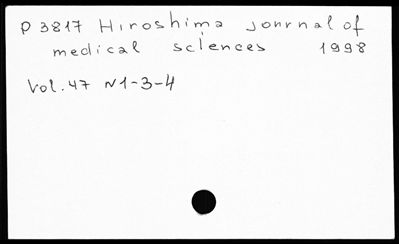 P 3817 Hiroshima Journal of
medical sciences 1998
Vol. 47 N1-3-4